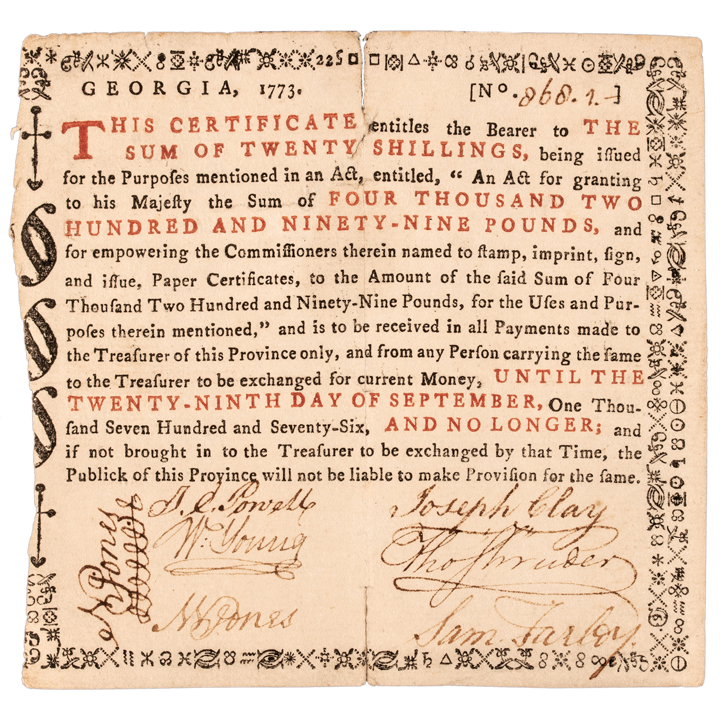 GEORGIA, 1773. [No. 868.1-]
THIS CERTIFICATE entitles the Bearer to THE
SUM OF TWENTY SHILLINGS, being iſſued
for the Purpoſes mentioned in an Act, entitled, “ An Act for granting
to his Majeſty the Sum of FOUR THOUSAND TWO
HUNDRED AND NINETY-NINE POUNDS, and
for empowering the Commiſſioners therein named to ſtamp, imprint, ſign,
and iſſue, Paper Certificates, to the Amount of the ſaid Sum of Four
Thouſand Two Hundred and Ninety-Nine Pounds, for the Uſes and Pur-
poſes therein mentioned,” and is to be received in all Payments made to
the Treaſurer of this Province only, and from any Perſon carrying the ſame
to the Treaſurer to be exchanged for current Money, UNTIL THE
TWENTY-NINTH DAY OF SEPTEMBER, One Thou-
ſand Seven Hundred and Seventy-Six, AND NO LONGER; and
if not brought in to the Treaſurer to be exchanged by that Time, the
Publick of this Province will not be liable to make Proviſion for the ſame.
J. E. Powell Joseph Clay
Wm. Young
N Jones Sam Farley
N Jones